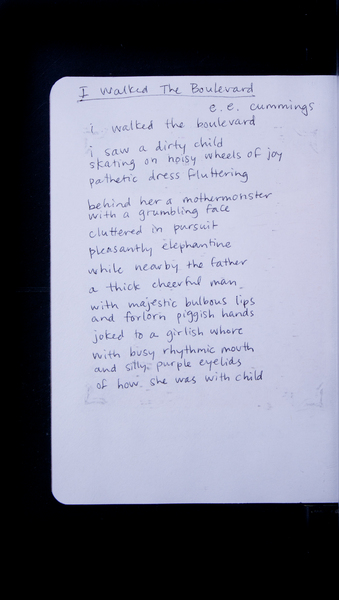 I Walked The Boulevard
e.e. cummings
i walked the boulevard
i saw a dirty child
skating on noisy wheels of joy
pathetic dress fluttering
behind her a mothermonster
with a grumbling face
cluttered in pursuit
pleasantly elephantine
while nearby the father
a thick cheerful man
with majestic bulbous lips
and forlorn piggish hands
joked to a girlish whore
with busy rhythmic mouth
and silly purple eyelids
of how she was with child